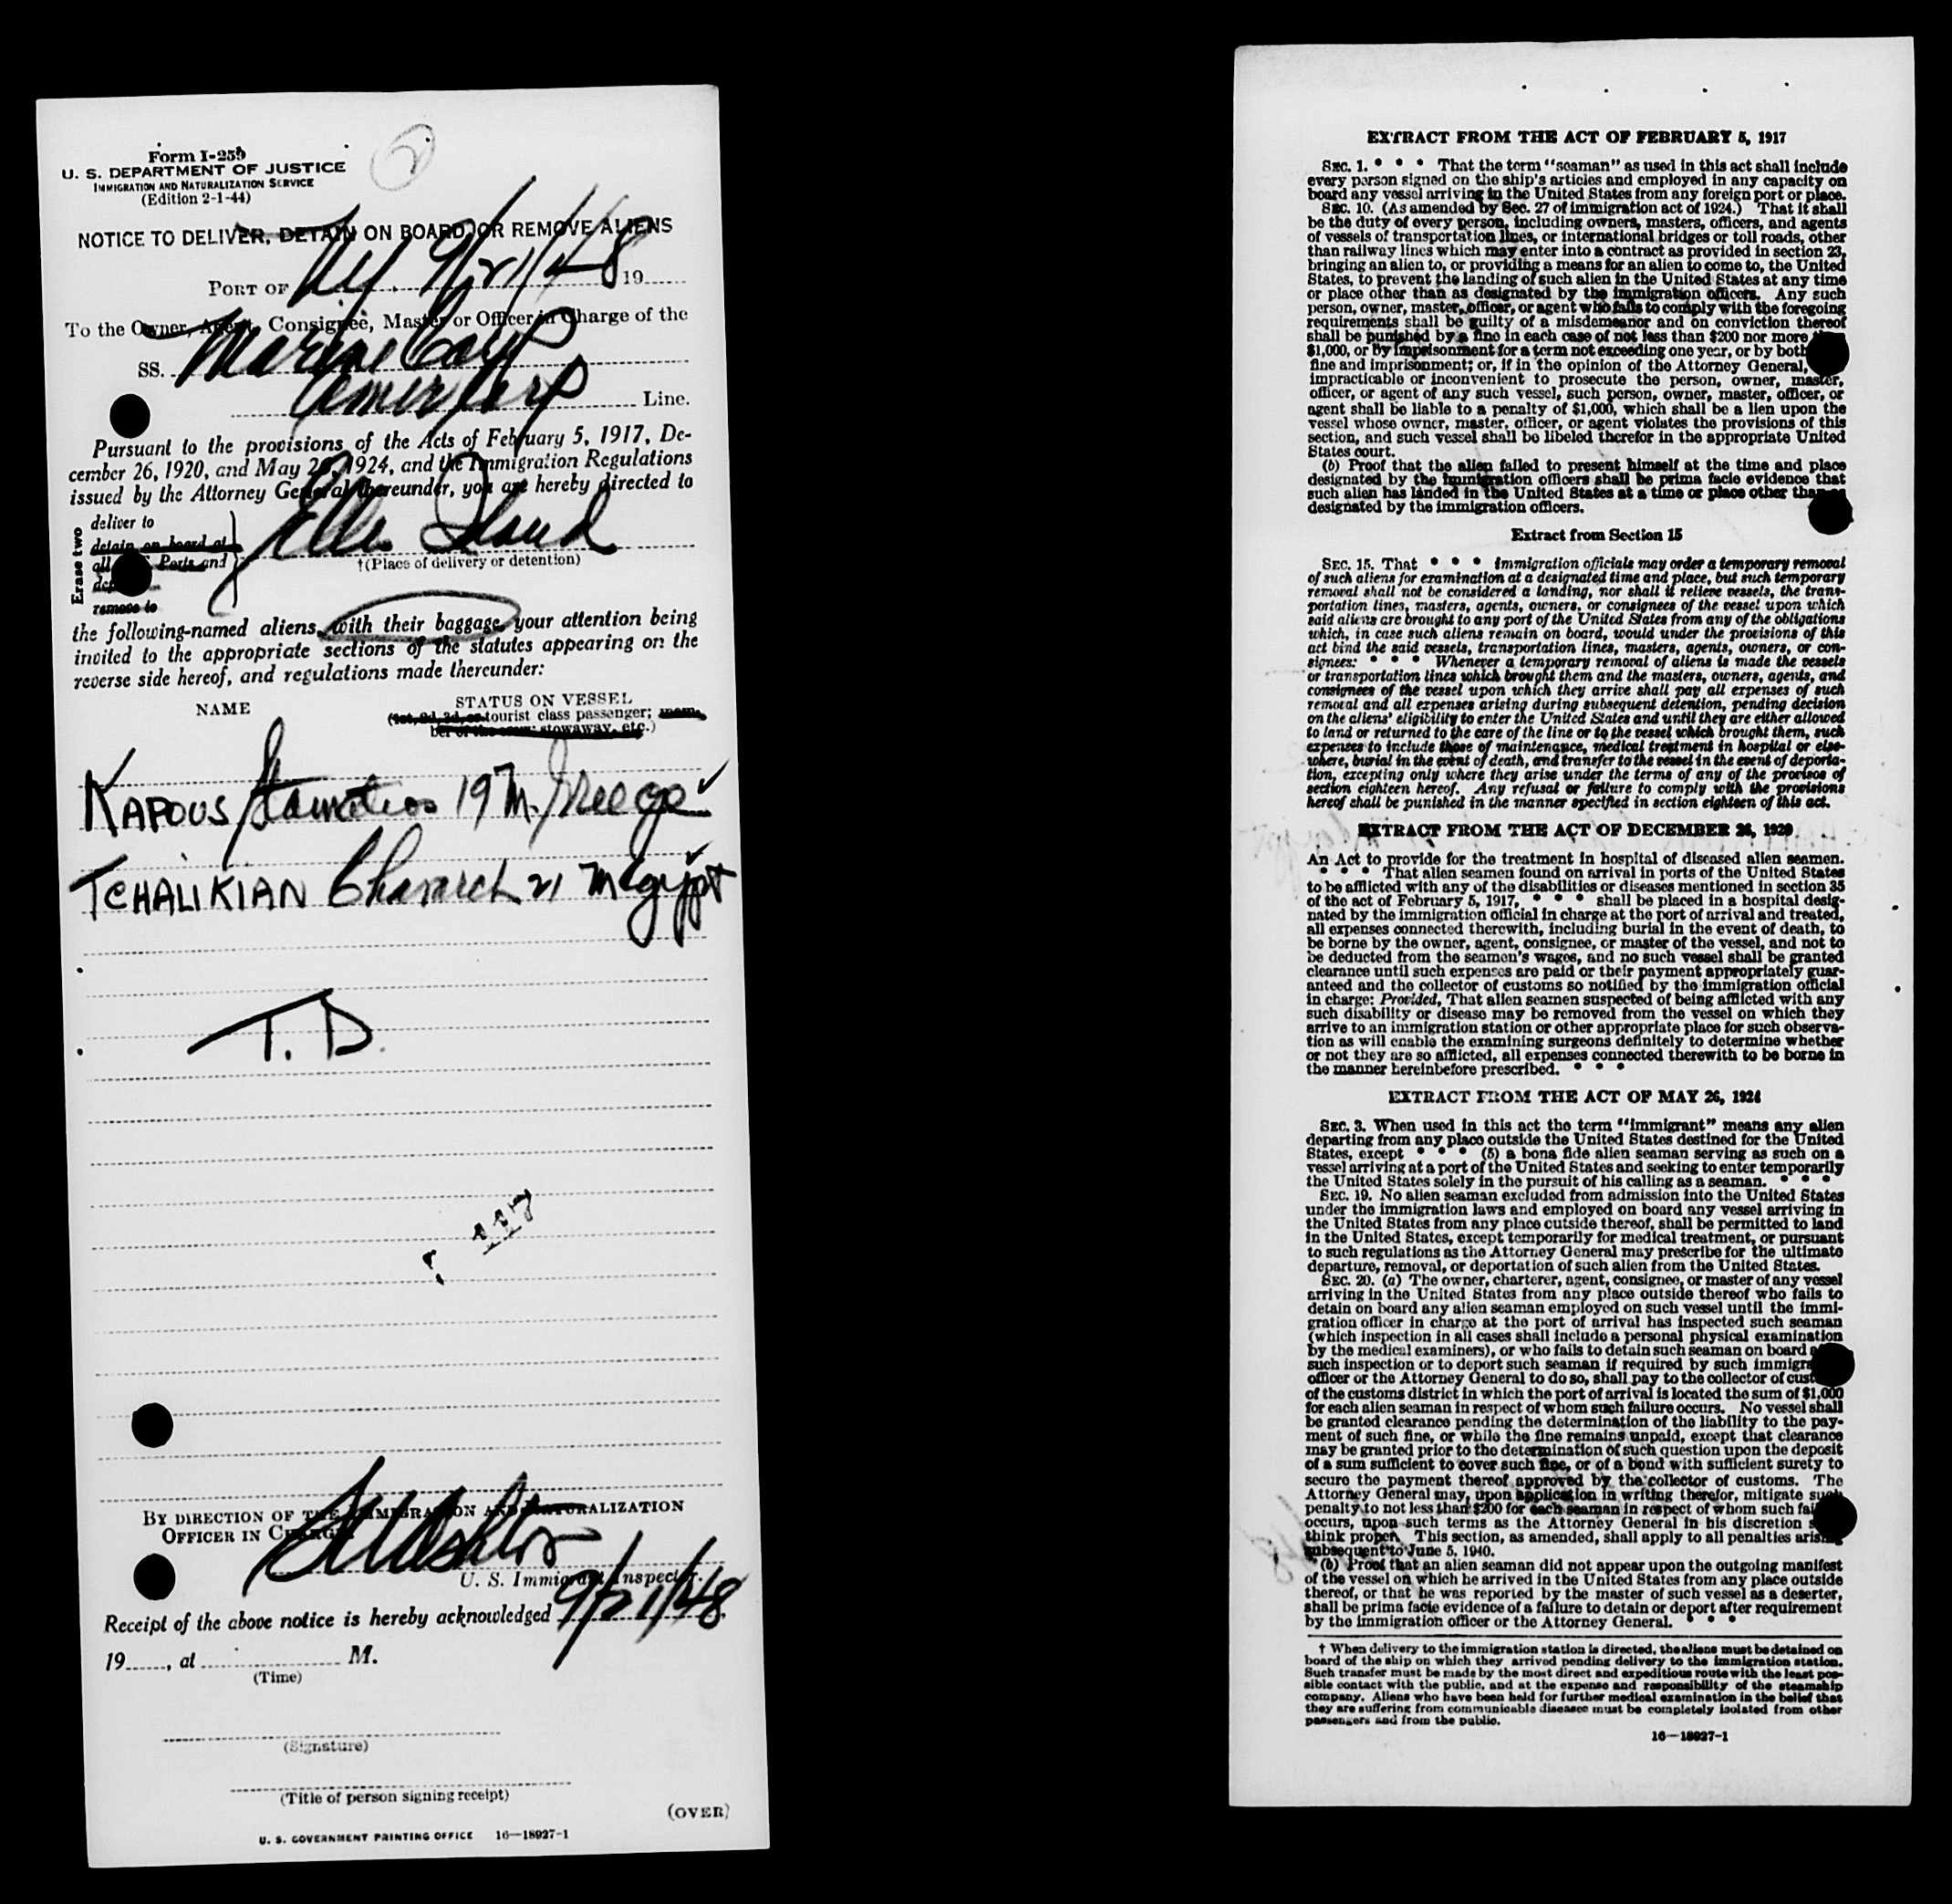 Form I-259
U. S. DEPARTMENT OF JUSTICE
IMMIGRATION AND NATURALIZATION SERVICE
(Edition 2-1-44)
2
NOTICE TO DELIVER, DETAIN ON BOARD, OR REMOVE ALIENS
PORT OF N.Y. 9/21/48 19
To the Owner, Agent, Consignee, Master or Officer in Charge of the
SS. Marine Carp
Amer Exp Line.
Pursuant to the provisions of the Acts of February 5, 1917, De-
cember 26, 1920, and May 26, 1924, and the Immigration Regulations
issued by the Attorney General thereunder, you are hereby directed to
Erase two
deliver to
detain on board at
all Ports and
remove to
Ellis Island
†(Place of delivery or detention)
the following-named aliens, with their baggage, your attention being
invited to the appropriate sections of the statutes appearing on the
reverse side hereof, and regulations made thereunder:
NAME
STATUS ON VESSEL
(1st, 2d, 3d, or tourist class passenger; mem-
ber of the crew; stowaway, etc.)
KAPOUS Stamatios 19 M. Greece ✓
TCHALIKIAN 21 M Egypt ✓
T. D.
BY DIRECTION OF THE IMMIGRATION AND NATURALIZATION
OFFICER IN CHARGE
U. S. Immigrant Inspector.
Receipt of the above notice is hereby acknowledged 9/21/48,
19......, at .................. M.
(Time)
(Signature)
(Title of person signing receipt)
(OVER)
U. S. GOVERNMENT PRINTING OFFICE 16—18927-1
EXTRACT FROM THE ACT OF FEBRUARY 5, 1917
SEC. 1. * * * That the term "seaman" as used in this act shall include
every person signed on the ship's articles and employed in any capacity on
board any vessel arriving in the United States from any foreign port or place.
SEC. 10. (As amended by Sec. 27 of immigration act of 1924.) That it shall
be the duty of every person, including owners, masters, officers, and agents
of vessels of transportation lines, or international bridges or toll roads, other
than railway lines which may enter into a contract as provided in section 23,
bringing an alien to, or providing a means for an alien to come to, the United
States, to prevent the landing of such alien in the United States at any time
or place other than as designated by the immigration officers. Any such
person, owner, master, officer, or agent who fails to comply with the foregoing
requirements shall be guilty of a misdemeanor and on conviction thereof
shall be punished by a fine in each case of not less than $200 nor more
$1,000, or by imprisonment for a term not exceeding one year, or by both
fine and imprisonment; or, if in the opinion of the Attorney General,
impracticable or inconvenient to prosecute the person, owner, master,
officer, or agent of any such vessel, such person, owner, master, officer, or
agent shall be liable to a penalty of $1,000, which shall be a lien upon the
vessel whose owner, master, officer, or agent violates the provisions of this
section, and such vessel shall be libeled therefor in the appropriate United
States court.
(b) Proof that the alien failed to present himself at the time and place
designated by the immigration officers shall be prima facie evidence that
such alien has landed in the United States at a time or place other than as
designated by the immigration officers.
Extract from Section 15
SEC. 15. That * * * immigration officials may order a temporary removal
of such aliens for examination at a designated time and place, but such temporary
removal shall not be considered a landing, nor shall it relieve vessels, the trans-
portation lines, masters, agents, owners, or consignees of the vessel upon which
said aliens are brought to any port of the United States from any of the obligations
which, in case such aliens remain on board, would under the provisions of this
act bind the said vessels, transportation lines, masters, agents, owners, or con-
signees: * * * Whenever a temporary removal of aliens is made the vessels
or transportation lines which brought them and the masters, owners, agents, and
consignees of the vessel upon which they arrive shall pay all expenses of such
removal and all expenses arising during subsequent detention, pending decision
on the aliens' eligibility to enter the United States and until they are either allowed
to land or returned to the care of the line or to the vessel which brought them, such
expenses to include those of maintenance, medical treatment in hospital or else-
where, burial in the event of death, and transfer to the vessel in the event of deporta-
tion, excepting only where they arise under the terms of any of the provisos of
section eighteen hereof. Any refusal or failure to comply with the provisions
hereof shall be punished in the manner specified in section eighteen of this act.
EXTRACT FROM THE ACT OF DECEMBER 26, 1920
An Act to provide for the treatment in hospital of diseased alien seamen.
* * * That alien seamen found on arrival in ports of the United States
to be afflicted with any of the disabilities or diseases mentioned in section 35
of the act of February 5, 1917, * * * shall be placed in a hospital desig-
nated by the immigration official in charge at the port of arrival and treated,
all expenses connected therewith, including burial in the event of death, to
be borne by the owner, agent, consignee, or master of the vessel, and not to
be deducted from the seamen's wages, and no such vessel shall be granted
clearance until such expenses are paid or their payment appropriately guar-
anteed and the collector of customs so notified by the immigration official
in charge: Provided, That alien seamen suspected of being afflicted with any
such disability or disease may be removed from the vessel on which they
arrive to an immigration station or other appropriate place for such observa-
tion as will enable the examining surgeons definitely to determine whether
or not they are so afflicted, all expenses connected therewith to be borne in
the manner hereinbefore prescribed. * * *
EXTRACT FROM THE ACT OF MAY 26, 1924
SEC. 3. When used in this act the term "immigrant" means any alien
departing from any place outside the United States destined for the United
States, except * * * (5) a bona fide alien seaman serving as such on a
vessel arriving at a port of the United States and seeking to enter temporarily
the United States solely in the pursuit of his calling as a seaman. * * *
SEC. 19. No alien seaman excluded from admission into the United States
under the immigration laws and employed on board any vessel arriving in
the United States from any place outside thereof, shall be permitted to land
in the United States, except temporarily for medical treatment, or pursuant
to such regulations as the Attorney General may prescribe for the ultimate
departure, removal, or deportation of such alien from the United States.
SEC. 20. (a) The owner, charterer, agent, consignee, or master of any vessel
arriving in the United States from any place outside thereof who fails to
detain on board any alien seaman employed on such vessel until the immi-
gration officer in charge at the port of arrival has inspected such seaman
(which inspection in all cases shall include a personal physical examination
by the medical examiners), or who fails to detain such seaman on board
such inspection or to deport such seaman if required by such
officer or the Attorney General to do so, shall pay to the collector of
of the customs district in which the port of arrival is located the sum of $1,000
for each alien seaman in respect of whom such failure occurs. No vessel shall
be granted clearance pending the determination of the liability to the pay-
ment of such fine, or while the fine remains unpaid, except that clearance
may be granted prior to the determination of such question upon the deposit
of a sum sufficient to cover such fine, or of a bond with sufficient surety to
secure the payment thereof approved by the collector of customs. The
Attorney General may, upon application in writing therefor, mitigate such
penalty to not less than $200 for each seaman in respect of whom such
occurs, upon such terms as the Attorney General in his discretion
think proper. This section, as amended, shall apply to all penalties arising
subsequent to June 5, 1940.
(b) Proof that an alien seaman did not appear upon the outgoing manifest
of the vessel on which he arrived in the United States from any place outside
thereof, or that he was reported by the master of such vessel as a deserter,
shall be prima facie evidence of a failure to detain or deport after requirement
by the immigration officer or the Attorney General. * * *
† When delivery to the immigration station is directed, the aliens must be detained on
board of the ship on which they arrived pending delivery to the immigration station.
Such transfer must be made by the most direct and expeditious route with the least pos-
sible contact with the public, and at the expense and responsibility of the steamship
company. Aliens who have been held for further medical examination in the belief that
they are suffering from communicable diseases must be completely isolated from other
passengers and from the public.
16—18927-1